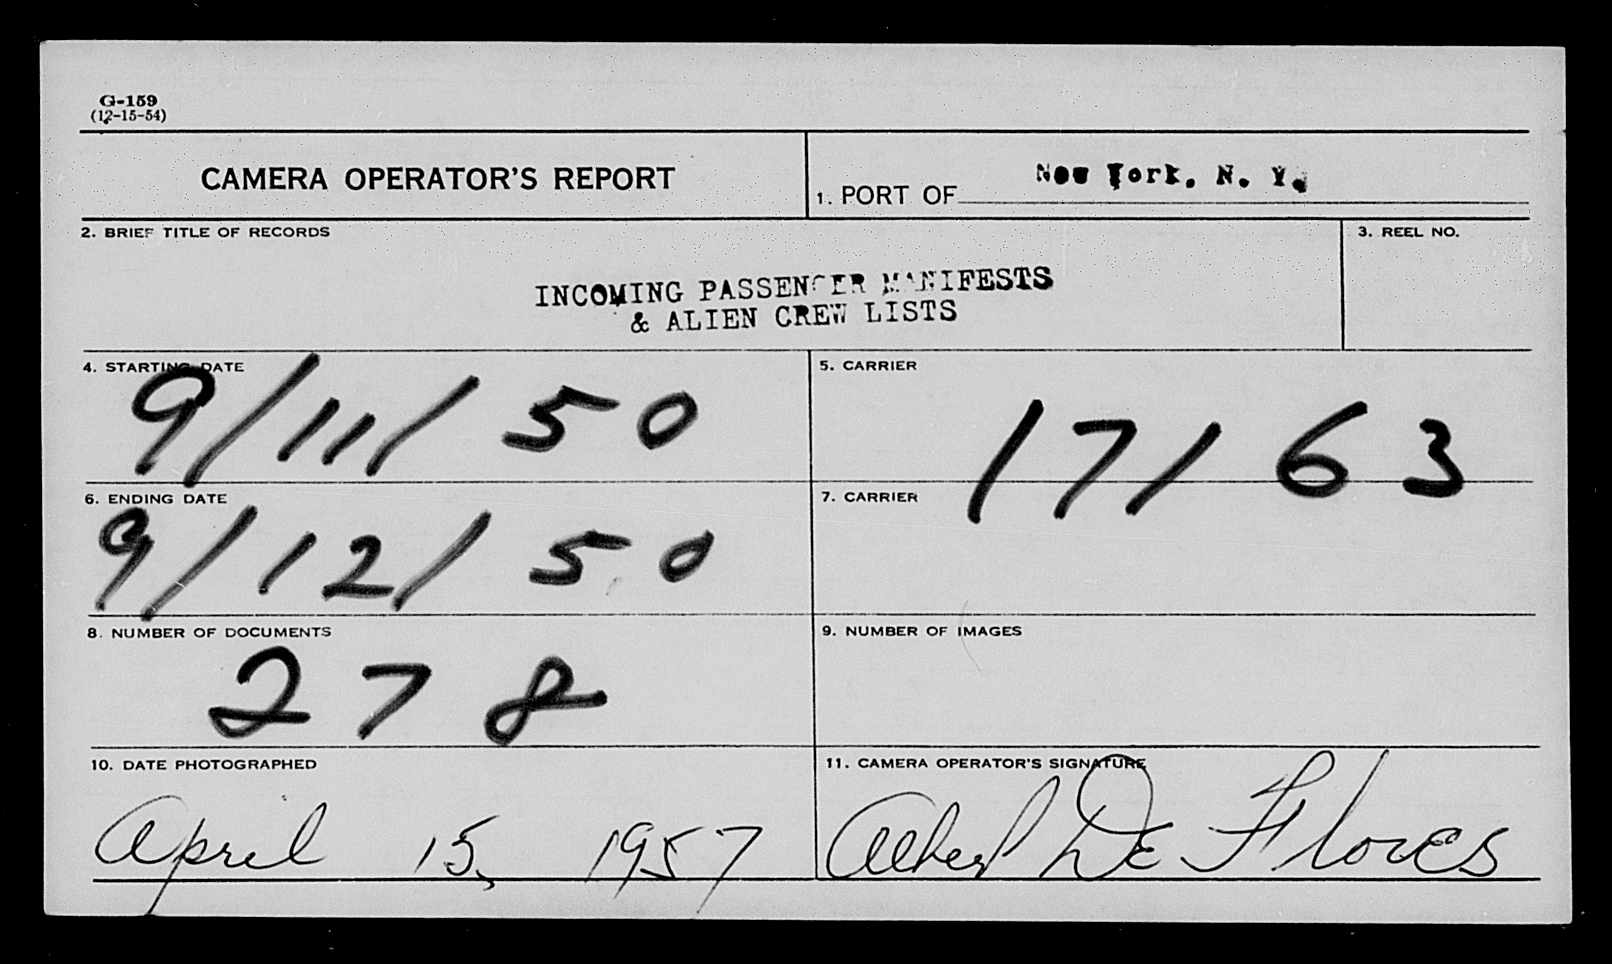 G-159
(12-15-54)
CAMERA OPERATOR'S REPORT
1. PORT OF New York, N. Y.
2. BRIEF TITLE OF RECORDS
3. REEL NO.
INCOMING PASSENGER MANIFESTS
& ALIEN CREW LISTS
4. STARTING DATE
9/11/50
5. CARRIER
17163
6. ENDING DATE
9/12/50
7. CARRIER
8. NUMBER OF DOCUMENTS
278
9. NUMBER OF IMAGES
10. DATE PHOTOGRAPHED
April 15, 1957
11. CAMERA OPERATOR'S SIGNATURE
Albert De Flores